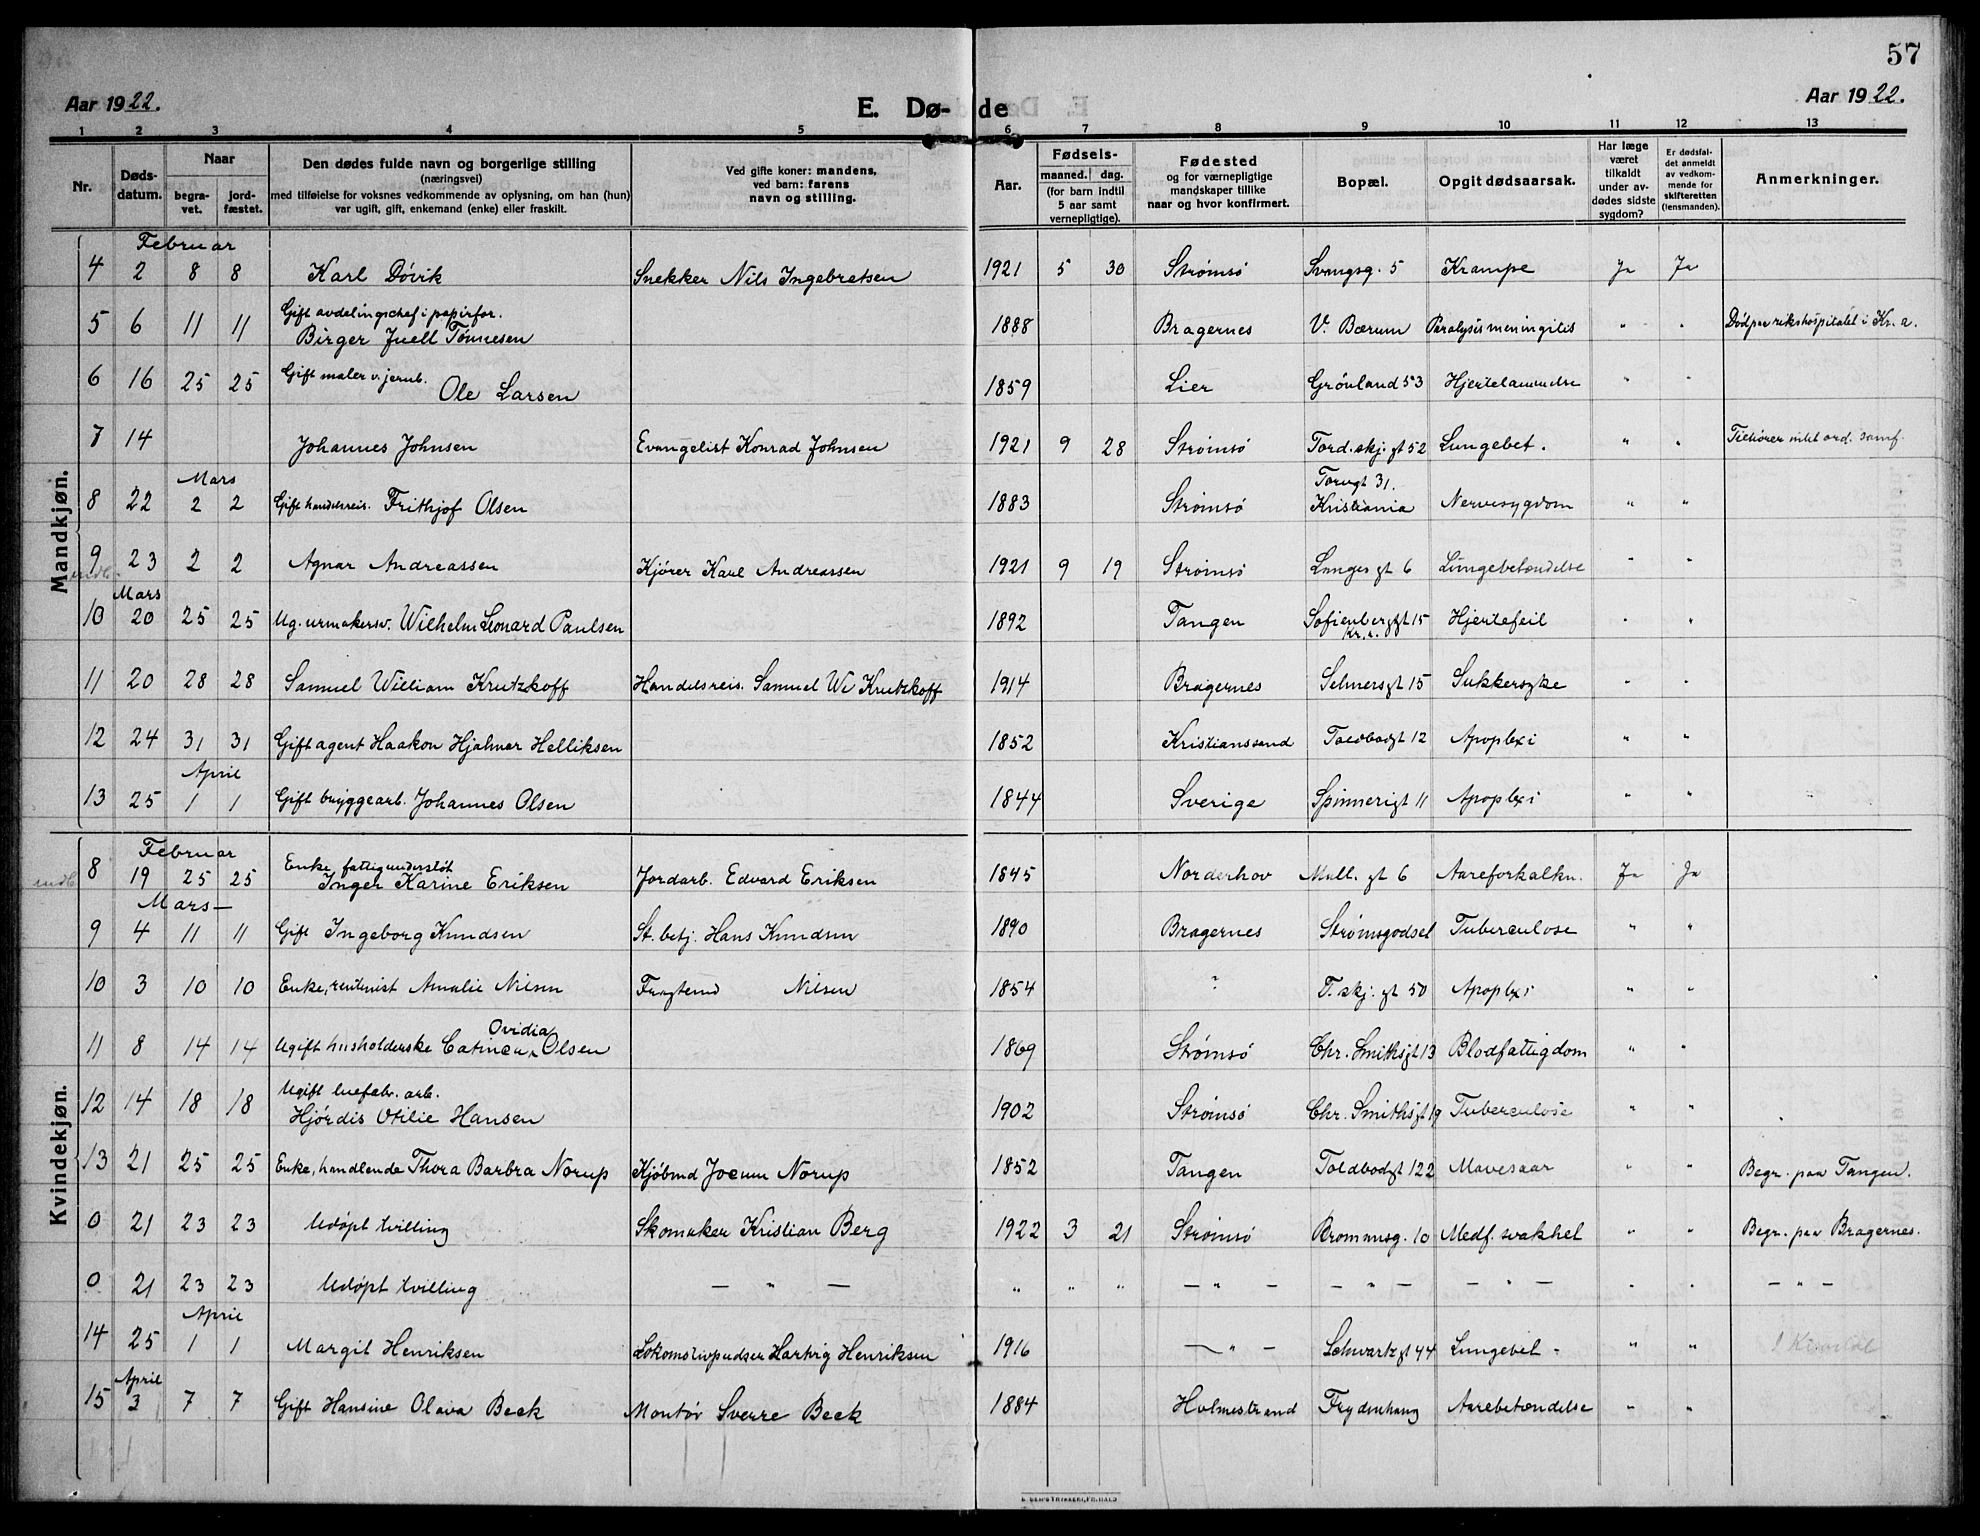 57
Aar 1922.
E. Dø- de
Aar 1922.
1 2 3 4 5 6 7 8 9 10 11 12 13
Nr.
Døds-
datum.
Naar
begra-
vet.
jord-
fæstet.
Den dødes fulde navn og borgerlige stilling
(næringsvei)
med tilføielse for voksnes vedkommende av oplysning, om han (hun)
var ugift, gift, enkemand (enke) eller fraskilt.
Ved gifte koner: mandens,
ved barn: farens
navn og stilling.
Aar.
Fødsels-
maaned. dag.
(for barn indtil
5 aar samt
vernepligtige).
Fødested
og for værnepligtige
mandskaper tillike
naar og hvor konfirmert.
Bopæl.
Opgit dødsaarsak.
Har læge
været
tilkaldt
under av-
dødes sidste
sygdom?
Er dødsfal-
det anmeldt
av vedkom-
mende for
skifteretten
(lensmanden).
Anmerkninger.
Mandkjøn.
Februar
4 2 8 8 Karl Dövik Snekker Nils Ingebretsen 1921 5 30 Strømsö Svangsg. 5 Krampe Ja Ja
Gift avdelingschef i papirfor.
5 6 11 11 Birger Juell Tönnesen 1888 Bragernes V. Bærum Paralysis meningitis " " Död paa rikshospitalet i Kr.a.
6 16 25 25 Gift maler v. jernb. Ole Larsen 1859 Lier Grönland 53 Hjertelammelse " "
7 14 Johannes Johnsen Evangelist Konrad Johnsen 1921 9 28 Strømsö Tord.skj. gt 52 Lungebet. " "
Mars
Torvgt 31.
8 22 2 2 Gift handelsreis. Frithjof Olsen 1883 Strømsö Kristiania Nervesygdom " "
9 23 2 2 Agnar Andreassen Kjörer Karl Andreassen 1921 9 19 Strømsö Langes gt 6 Lungebetændelse " "
indb.
Mars
10 20 25 25 Ug. urmakersv. Wilhelm Leonard Paulsen 1892 Tangen Sofienberggt 15 Hjertefeil " "
Kr.a.
11 20 28 28 Samuel William Krutzkoff Handelsreis. Samuel Wi Krutzkoff 1914 Bragernes Selmersgt 15 Sukkersyke " "
12 24 31 31 Gift agent Haakon Hjalmar Helliksen 1852 Kristianssand Toldbodgt 12 Apoplexi " "
April
13 25 1 1 Gift bryggearb. Johannes Olsen 1844 Sverige Spinnerigt 11 Apoplexi " "
Kvindekjøn.
Februar
Enke, fattigunderstöt
8 19 25 25 Inger Karine Eriksen Jordarb. Edvard Eriksen 1845 Norderhov Möll. gt 6 Aareforkalkn. Ja Ja
indb
Mars —
9 4 11 11 Gift Ingeborg Knudsen St. betj. Hans Knudsen 1890 Bragernes Strömsgodset Tuberculose " "
10 3 10 10 Enke, rentenist Amalie Nilsen Fragtemd Nilsen 1854 ? T. skj. gt 50 Apoplexi " "
Ovidia
11 8 14 14 Ugift husholderske Catinca Olsen 1869 Strømsö Chr. Smithsgt 13 Blodfattigdom " "
Ugift luefabr. arb.
12 14 18 18 Hjördis Otilie Hansen 1902 Strømsö Chr. Smithsgt 19 Tuberculose " "
13 21 25 25 Enke, handlende Thora Barbra Norup Kjöbmd Jocum Norup 1852 Tangen Toldbodgt 122 Mavesaar " " Begr. paa Tangen.
0 21 23 23 Udöpt tvilling Skomaker Kristian Berg 1922 3 21 Strømsö Brommsg. 10 Medf. svakhet " " Begr. paa Bragernes.
0 21 23 23 Udöpt tvilling — " — " " " — " — — " — — " — " " — " —
April
14 25 1 1 Margit Henriksen Lokomotivpudser Hartvig Henriksen 1916 — " — Schwartzgt 44 Lungebet - " "
April
15 3 7 7 Gift Hansine Olava Beck Montör Sverre Beck 1884 Holmestrand Frydenhaug Aarebetændelse " "